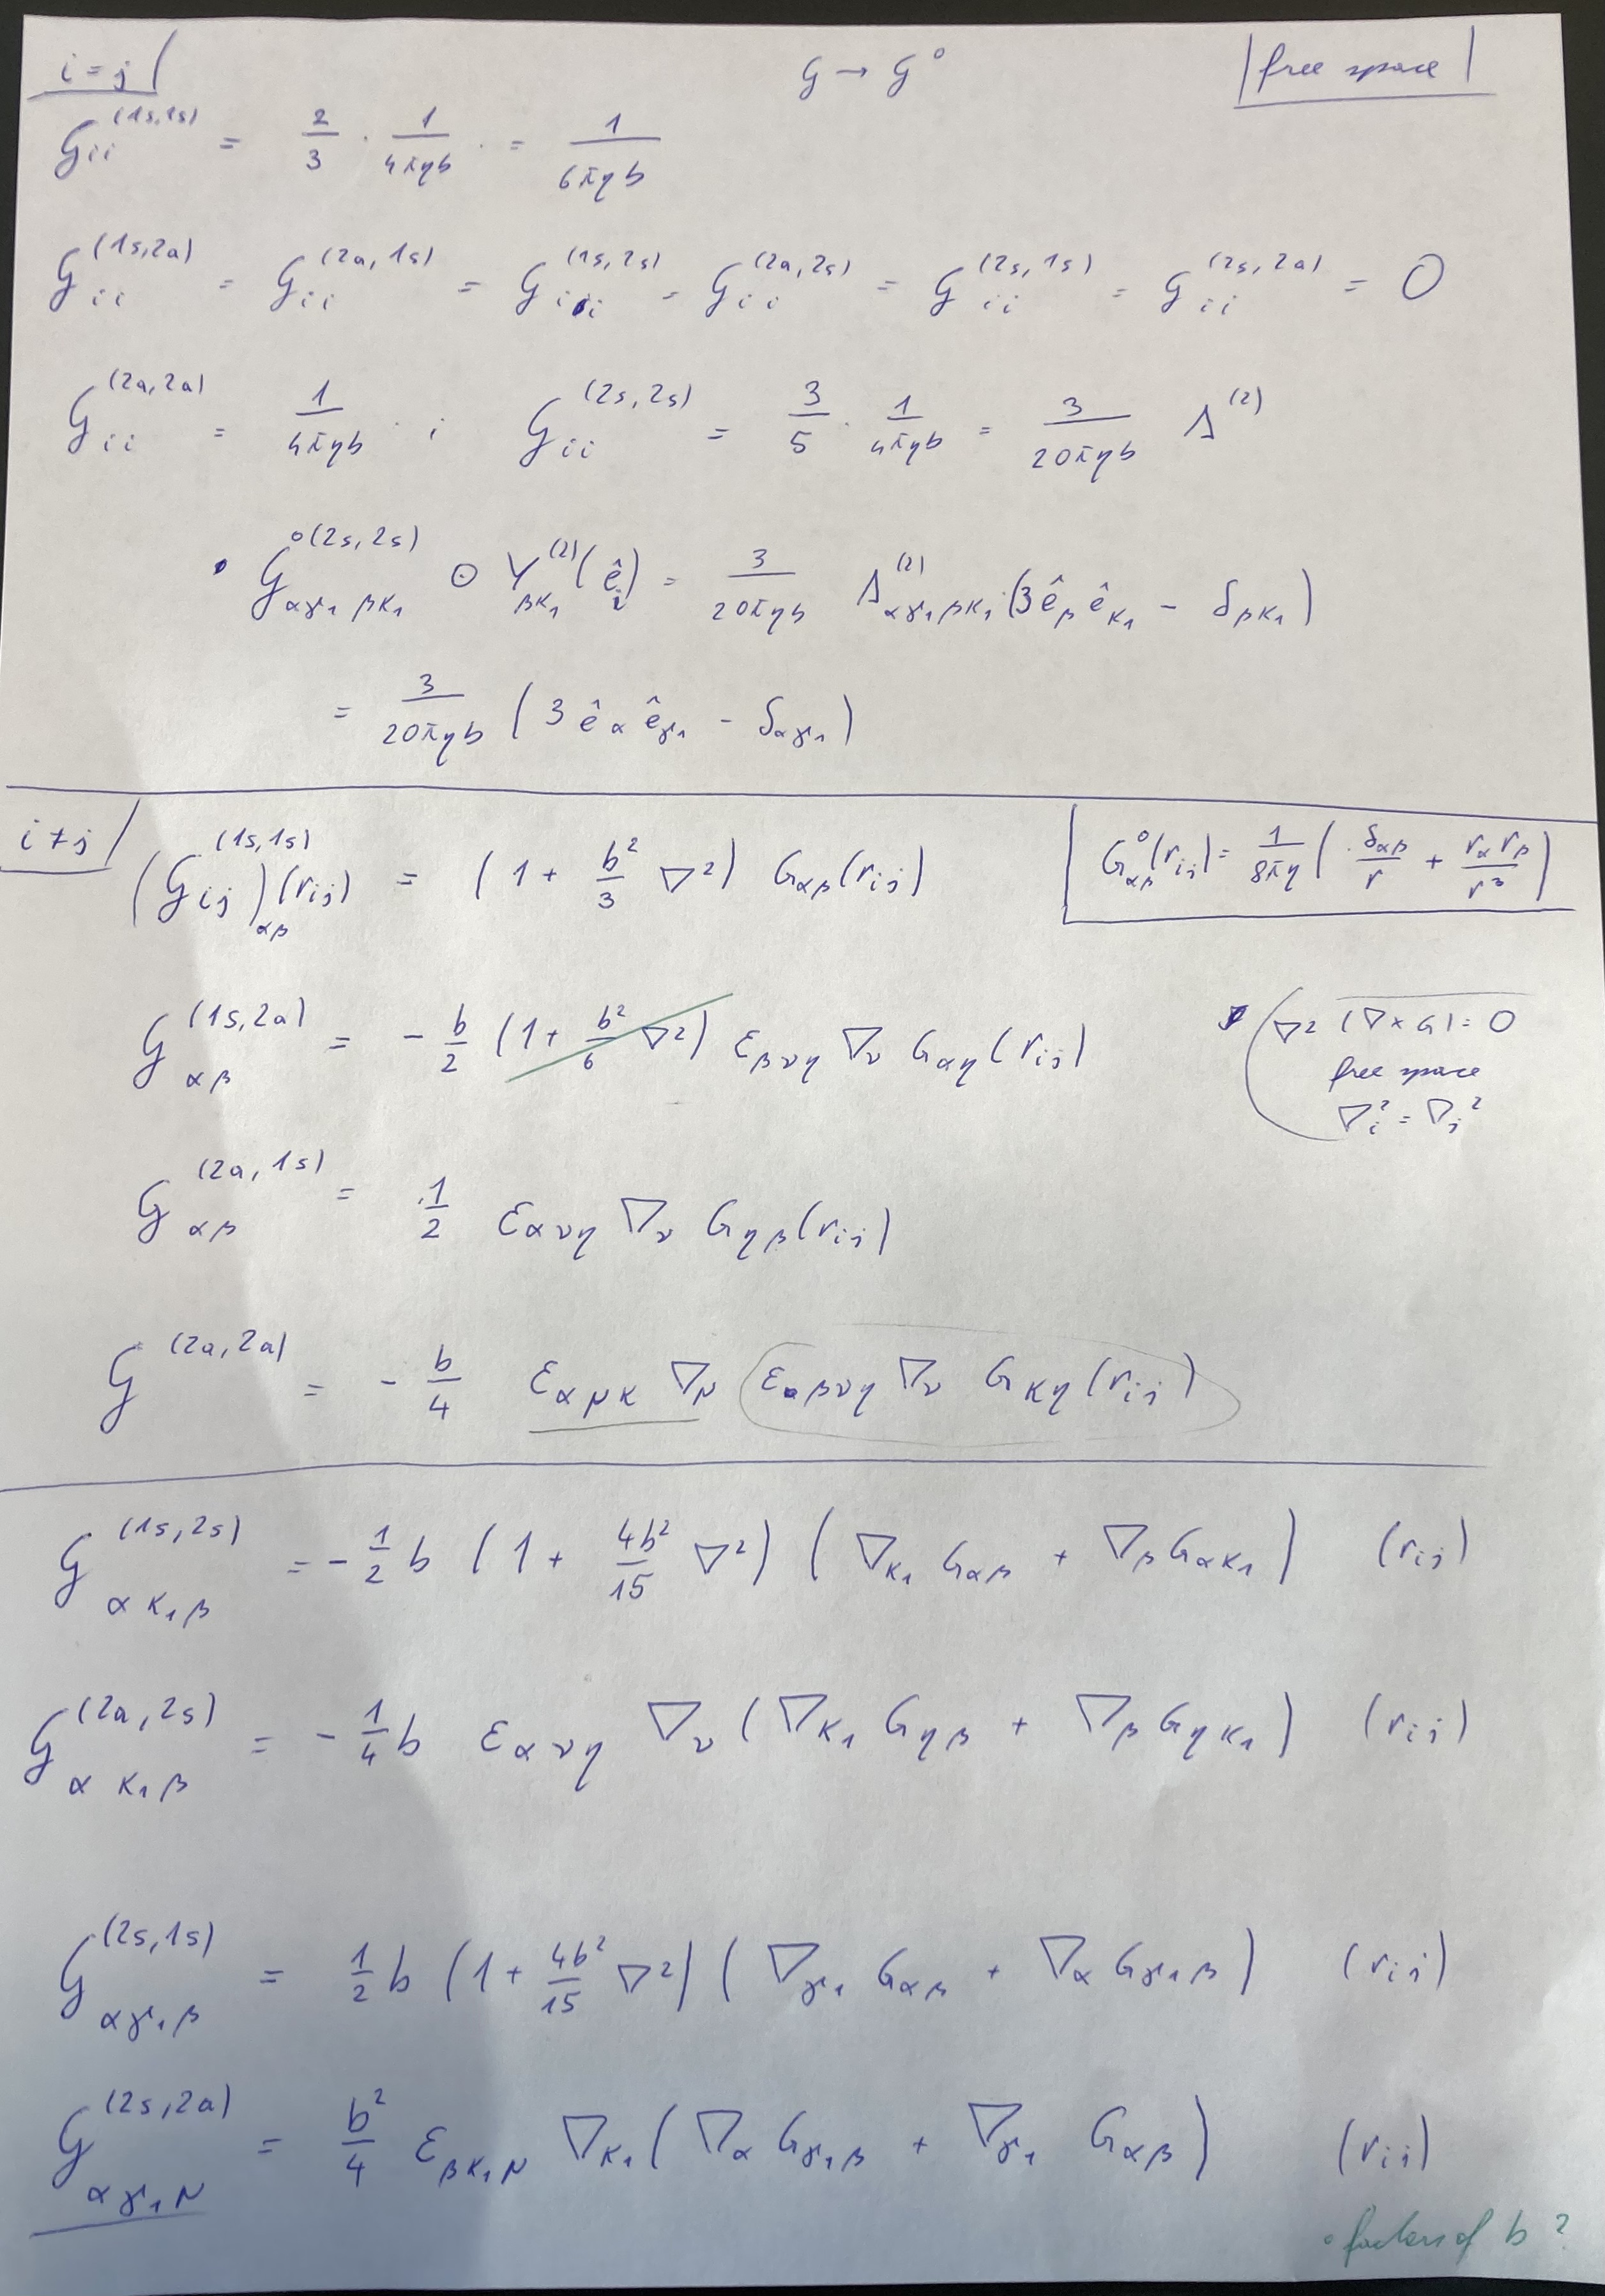 i = j   𝒢 → 𝒢°   |free space|
𝒢_{ii}^{(1s,1s)} = 2/3 · 1/(4πηb) · = 1/(6πηb)
𝒢_{ii}^{(1s,2a)} = 𝒢_{ii}^{(2a,1s)} = 𝒢_{ii}^{(1s,2s)} = 𝒢_{ii}^{(2a,2s)} = 𝒢_{ii}^{(2s,1s)} = 𝒢_{ii}^{(2s,2a)} = 0
𝒢_{ii}^{(2a,2a)} = 1/(4πηb) · ; 𝒢_{ii}^{(2s,2s)} = 3/5 · 1/(4πηb) = 3/(20πηb) Δ^{(2)}
• 𝒢_{αγ₁βκ₁}^{∘(2s,2s)} ⊙ Y_{βκ₁}^{(2)}(ê_i) = 3/(20πηb) Δ_{αγ₁βκ₁}^{(2)} (3ê_β ê_{κ₁} − δ_{βκ₁})
= 3/(20πηb) (3ê_α ê_{γ₁} − δ_{αγ₁})
i ≠ j   (𝒢_{ij}^{(1s,1s)})_{αβ}(r_{ij}) = (1 + b²/3 ∇²) G_{αβ}(r_{ij})   G°_{αβ}(r_{ij}) = 1/(8πη) (δ_{αβ}/r + r_α r_β/r³)
𝒢_{αβ}^{(1s,2a)} = − b/2 (1 + b²/6 ∇²) ε_{βνη} ∇_ν G_{αη}(r_{ij})
∇² (∇×G) = 0
free space
∇_i² = ∇_j²
𝒢_{αβ}^{(2a,1s)} = 1/2 ε_{ανη} ∇_ν G_{ηβ}(r_{ij})
𝒢^{(2a,2a)} = − b/4 ε_{αμκ} ∇_μ ε_{βνη} ∇_ν G_{κη}(r_{ij})
𝒢_{ακ₁β}^{(1s,2s)} = − 1/2 b (1 + 4b²/15 ∇²) (∇_{κ₁} G_{αβ} + ∇_β G_{ακ₁}) (r_{ij})
𝒢_{ακ₁β}^{(2a,2s)} = − 1/4 b ε_{ανη} ∇_ν (∇_{κ₁} G_{ηβ} + ∇_β G_{ηκ₁}) (r_{ij})
𝒢_{αγ₁β}^{(2s,1s)} = 1/2 b (1 + 4b²/15 ∇²) (∇_{γ₁} G_{αβ} + ∇_α G_{γ₁β}) (r_{ij})
𝒢_{αγ₁μ}^{(2s,2a)} = b²/4 ε_{βκ₁μ} ∇_{κ₁} (∇_α G_{γ₁β} + ∇_{γ₁} G_{αβ}) (r_{ij})
• factors of b ?